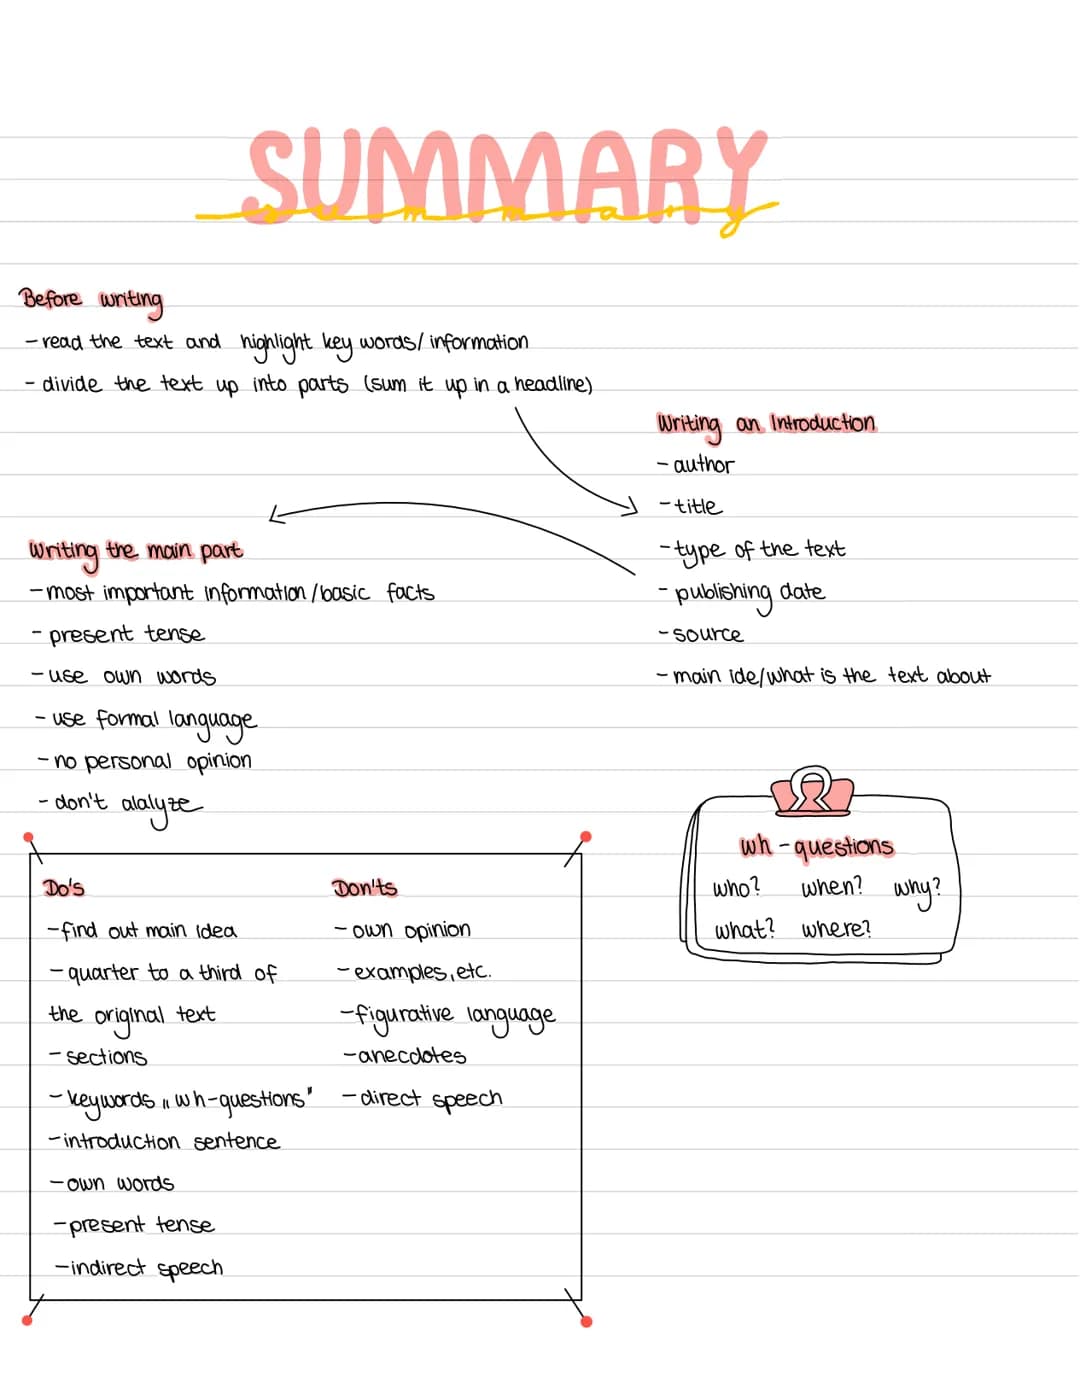 SUMMARY
summary
Before writing
- read the text and highlight key words/ information
- divide the text up into parts (sum it up in a headline)
Writing an Introduction
- author
- title
- type of the text
- publishing date
- source
- main ide/what is the text about
Writing the main part
- most important information/basic facts
- present tense
- use own words
- use formal language
- no personal opinion
- don't alalyze
wh-questions
who? when? why?
what? where?
Do's
- find out main idea
- quarter to a third of
the original text
- sections
- keywords „wh-questions"
- introduction sentence
- own words
- present tense
- indirect speech
Don'ts
- own opinion
- examples, etc.
- figurative language
- anecdotes
- direct speech